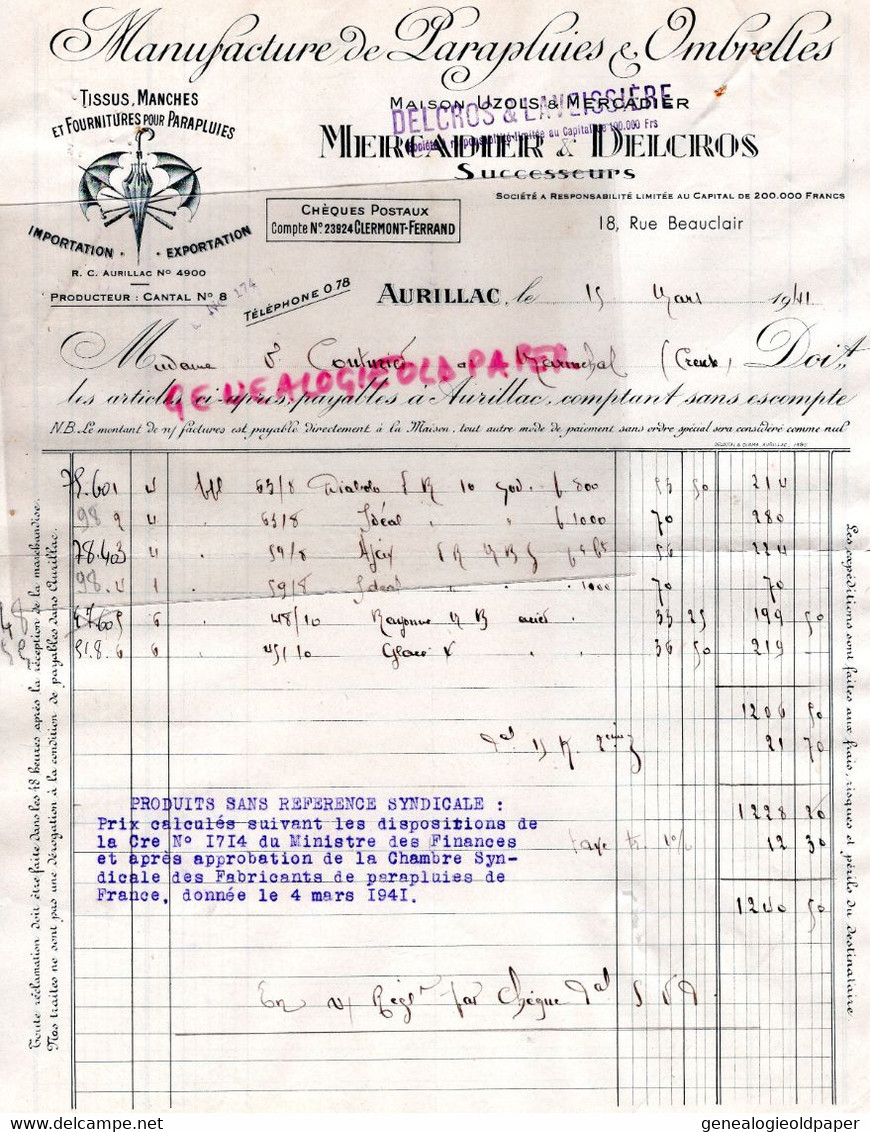 Manufacture de Parapluies & Ombrelles
TISSUS, MANCHES
ET FOURNITURES POUR PARAPLUIES
IMPORTATION · EXPORTATION
R. C. AURILLAC No 4900
PRODUCTEUR : CANTAL No 8
MAISON UZOLS & MERCADIER
DELCROS & LAVEISSIÈRE
Société à responsabilité limitée au Capital de 100.000 Frs
MERCADIER & DELCROS
Successeurs
SOCIÉTÉ A RESPONSABILITÉ LIMITÉE AU CAPITAL DE 200.000 FRANCS
CHÈQUES POSTAUX
Compte No 23924 CLERMONT-FERRAND
18, Rue Beauclair
TÉLÉPHONE 0.78
174
AURILLAC, le 15 Mars 1941
Madame Vve (Creuse) Doit
GENEALOGIE OLD PAPER
les articles ci-après, payables à Aurillac, comptant sans escompte
N.B. Le montant de n/ factures est payable directement à la Maison, tout autre mode de paiement sans ordre spécial sera considéré comme nul
75.60 1 4 63/8 Diabolo 10 800 53 50 214
98 2 4 63/8 Idéal " " 1000 70 280
78.40 3 4 59/8 Ajax 56 224
98. 4 1 59/8 Ideal " " 1000 70 70
5 6 48/10 Rayonne acier 33 25 199 50
51.8 6 6 45/10 Glacé 36 50 219
1206 50
21 70
1228 20
taxe 1% 12 30
1240 50
PRODUITS SANS REFERENCE SYNDICALE :
Prix calculés suivant les dispositions de
la Cre No I7I4 du Ministre des Finances
et après approbation de la Chambre Syn-
dicale des Fabricants de parapluies de
France, donnée le 4 mars I94I.
En v/ Règlt par Chèque
Toute réclamation doit être faite dans les 48 heures après la réception de la marchandise.
Nos traites ne sont pas une dérogation à la condition de payables dans Aurillac.
Les expéditions sont faites aux frais, risques et périls du destinataire
genealogieoldpaper